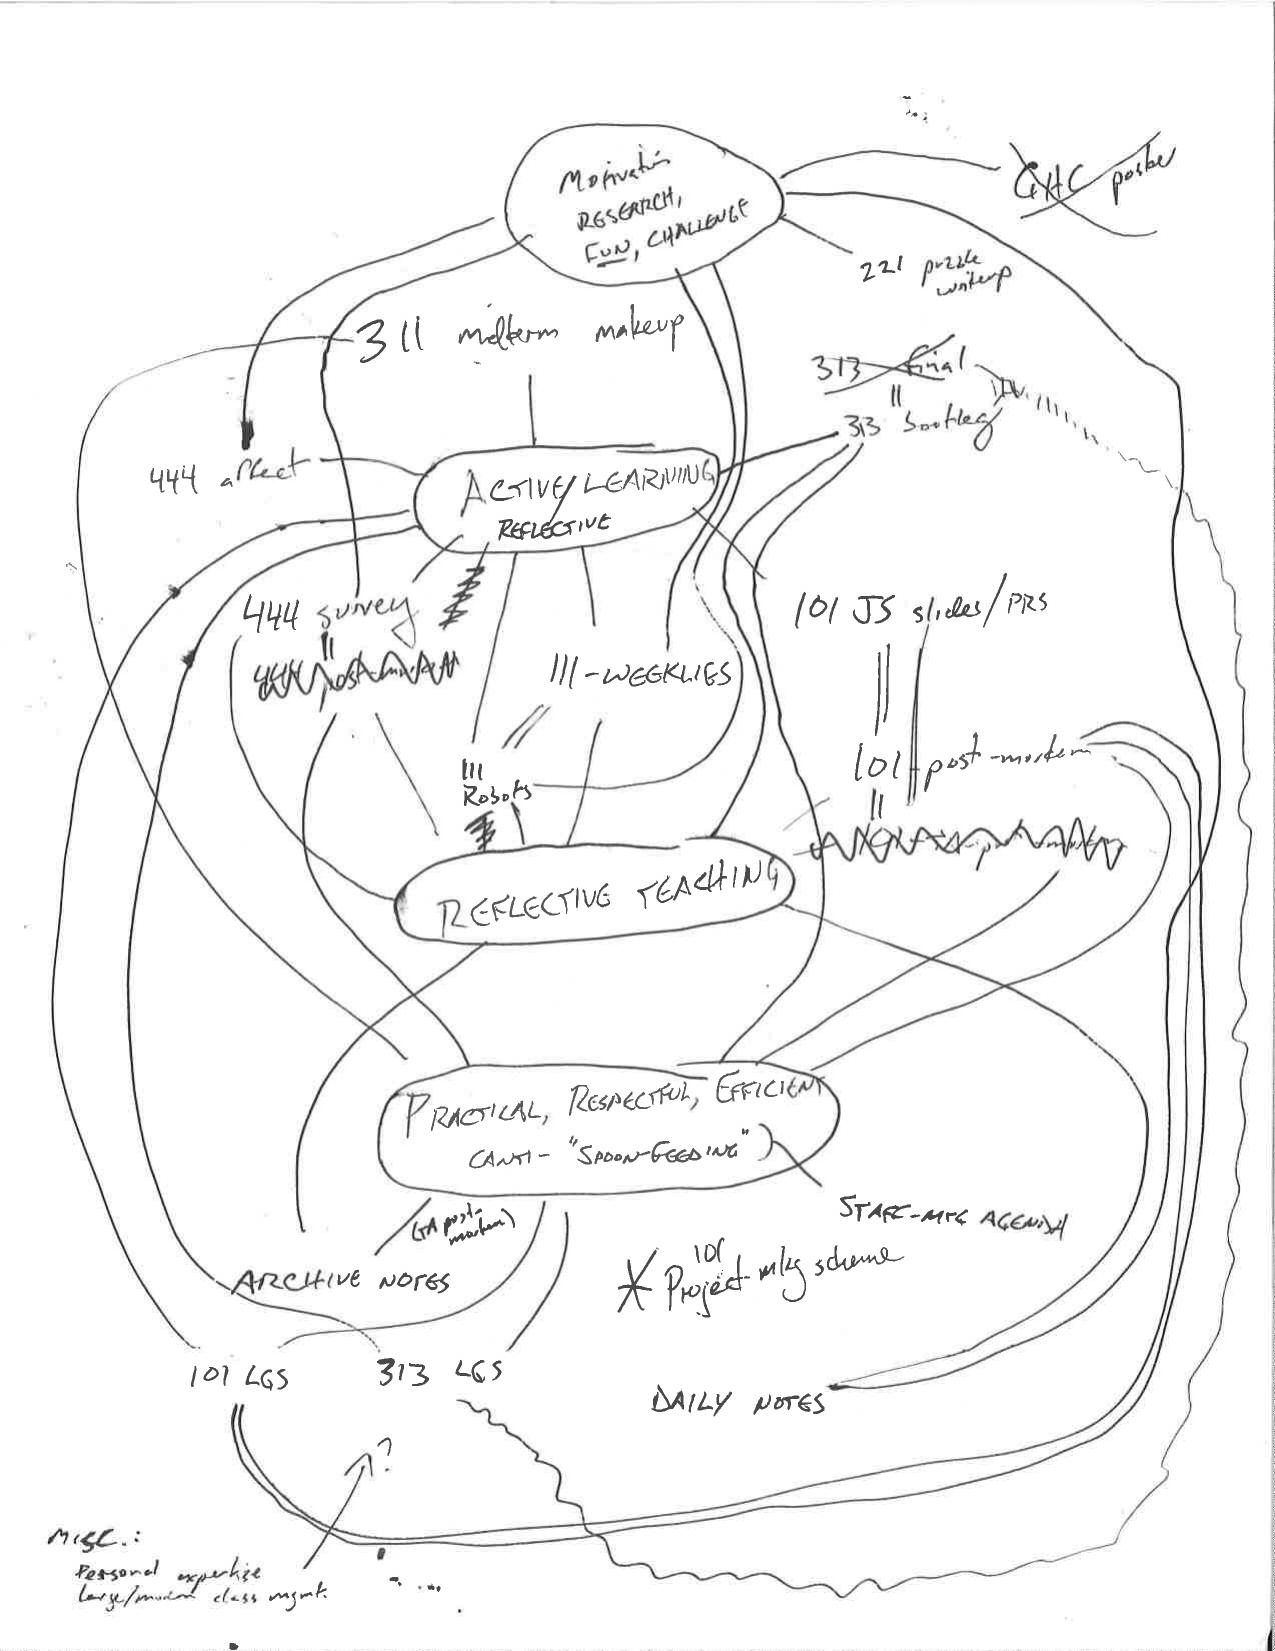 Motivation
RESEARCH,
FUN, CHALLENGE
GHC poster
221 puzzle
writeup
311 midterm makeup
313 final
313 bootleg
444 affect
ACTIVE/LEARNING
REFLECTIVE
444 survey
444 post-mortem
111-WEEKLIES
101 JS slides/PRS
111
Robots
101 post-mortem
REFLECTIVE TEACHING
PRACTICAL, RESPECTFUL, EFFICIENT
(ANTI-"SPOON-FEEDING")
(TA post-
mortem)
STAFF-MTG AGENDA
ARCHIVE NOTES
101
* Project mkg scheme
101 LGS
313 LGS
DAILY NOTES
?
MISC.:
Personal expertise
large/modern class mgmt.